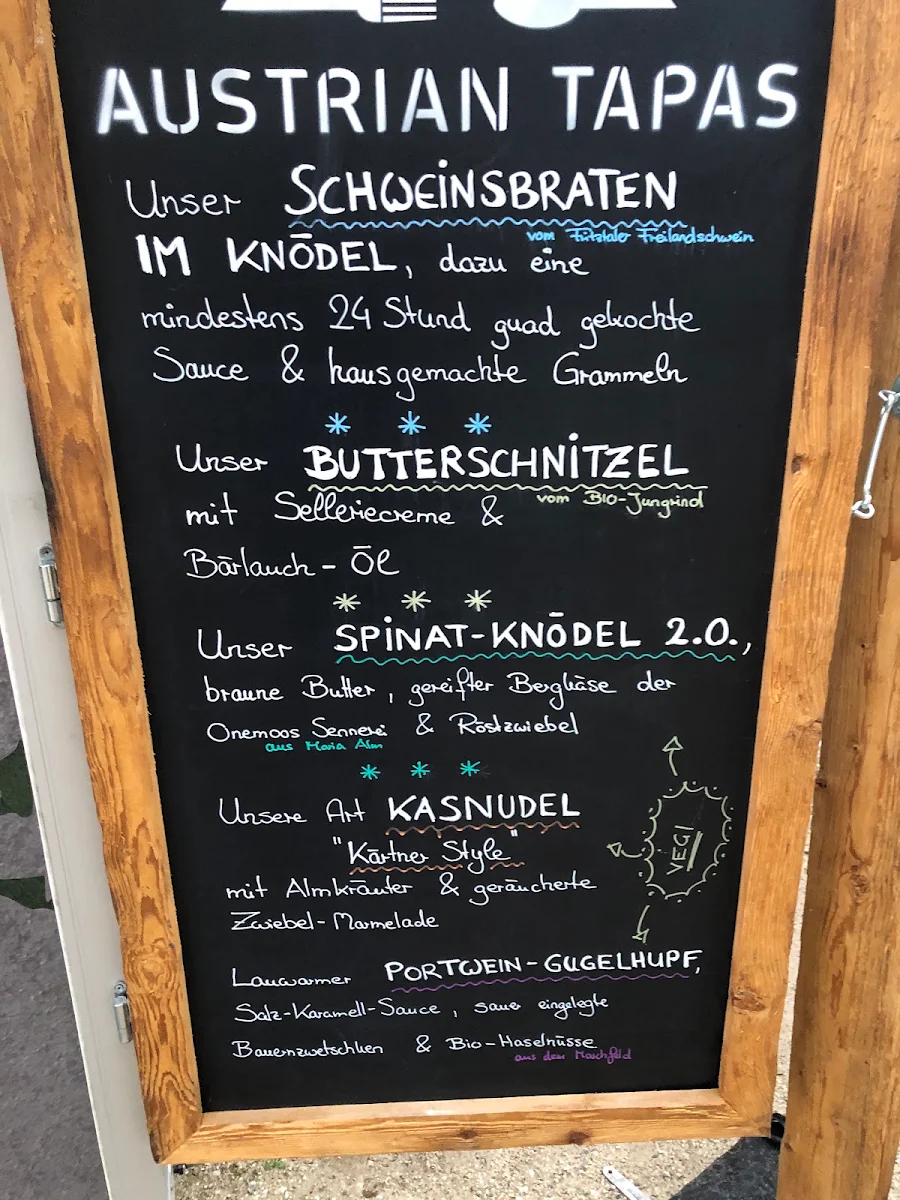 AUSTRIAN TAPAS
Unser SCHWEINSBRATEN
vom Freilandschwein
IM KNÖDEL, dazu eine
mindestens 24 Stund guad gekochte
Sauce & hausgemachte Grammeln
Unser BUTTERSCHNITZEL
vom BIO-Jungrind
mit Selleriecreme &
Bärlauch-Öl
Unser SPINAT-KNÖDEL 2.0.,
braune Butter, gereifter Bergkäse der
Onemoos Sennerei & Röstzwiebel
aus Maria Alm
Unsere Art KASNUDEL
"Kärtner Style"
mit Almkräuter & geräucherte
Zwiebel-Marmelade
VEGI
Lauwarmer PORTWEIN-GUGELHUPF,
Salz-Karamell-Sauce, sauer eingelegte
Bauernzwetschken & Bio-Haselnüsse
aus dem Marchfeld